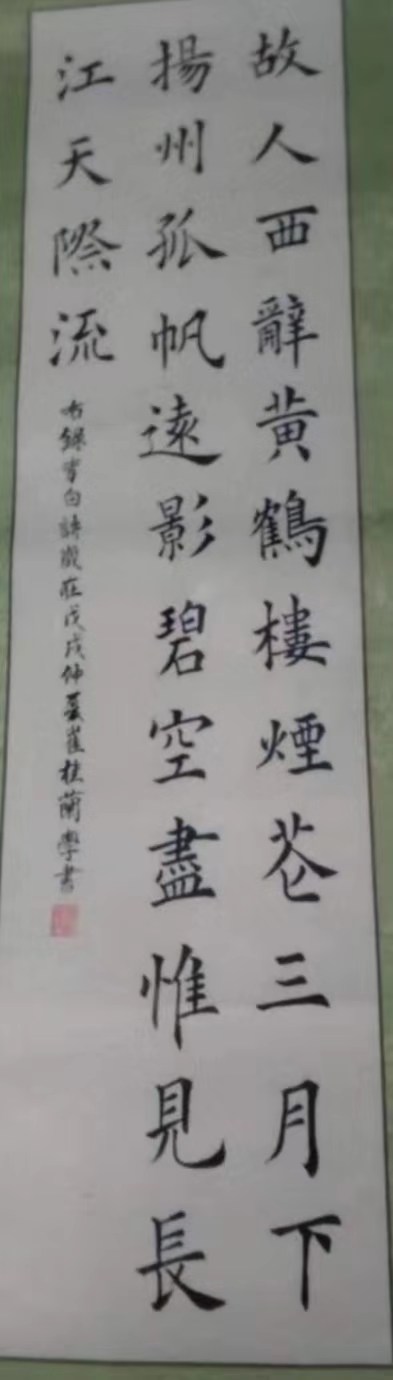 故人西辭黄鶴樓煙花三月下
揚州孤帆遠影碧空盡惟見長
江天際流
右錄李白詩歲在戊戌仲夏崔桂蘭學書